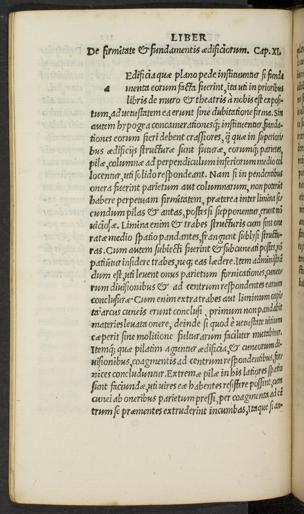 LIBER
De firmitate & fundamentis ædificiorum. Cap. XI.
Edificia quæ plano pede instituuntur si funda
a
menta eorum facta fuerint, ita uti in prioribus
libris de muro & theatris à nobis est exposi-
tum, ad uetustatem ea erunt sine dubitatione firma. Sin
autem hypogea concamarationesq; instituentur, funda-
tiones eorum fieri debent crassiores, q quæ in superiori-
bus ædificijs structuræ sint futuræ, eorumq; parietes,
pilæ, columnæ ad perpendiculum inferiorum medio col
locentur, uti solido respondeant. Nam si in pendentibus
onera fuerint parietum aut columnarum, non poterit
habere perpetuam firmitatem, præterea inter limina se-
cundum pilas & antas, postes si supponentur, erunt nõ
uiciosæ. Limina enim & trabes structuris cum sint one
ratæ medio spatio pandantes, frangunt sublysi structu-
ras. Cum autem subiecti fuerint & subcuneati postes, nõ
patiũtur insidere trabes, neq; eas lædere. Item administrã
dum est, uti leuent onus parietum fornicationes, cuneo-
rum diuisionibus & ad centrum respondentes earum
conclusuræ. Cum enim extra trabes aut liminum capi-
ta arcus cuneis erunt conclusi, primum non pandabit
materies leuata onere, deinde si quod è uetustate uitium
cæperit sine molitione fulturarum faciliter mutabitur.
Itemq; quæ pilatim aguntur ædificia, & cuneorum di-
uisionibus, coagmentis ad centrum respondentibus, for-
nices concluduntur. Extremæ pilæ in his latiores spatio
sunt faciundæ, uti uires eæ habentes resistere possint, cum
cunei ab oneribus parietum pressi, per coagmenta ad cẽ
trum se præmentes extruderint incumbas, Itaque si an-